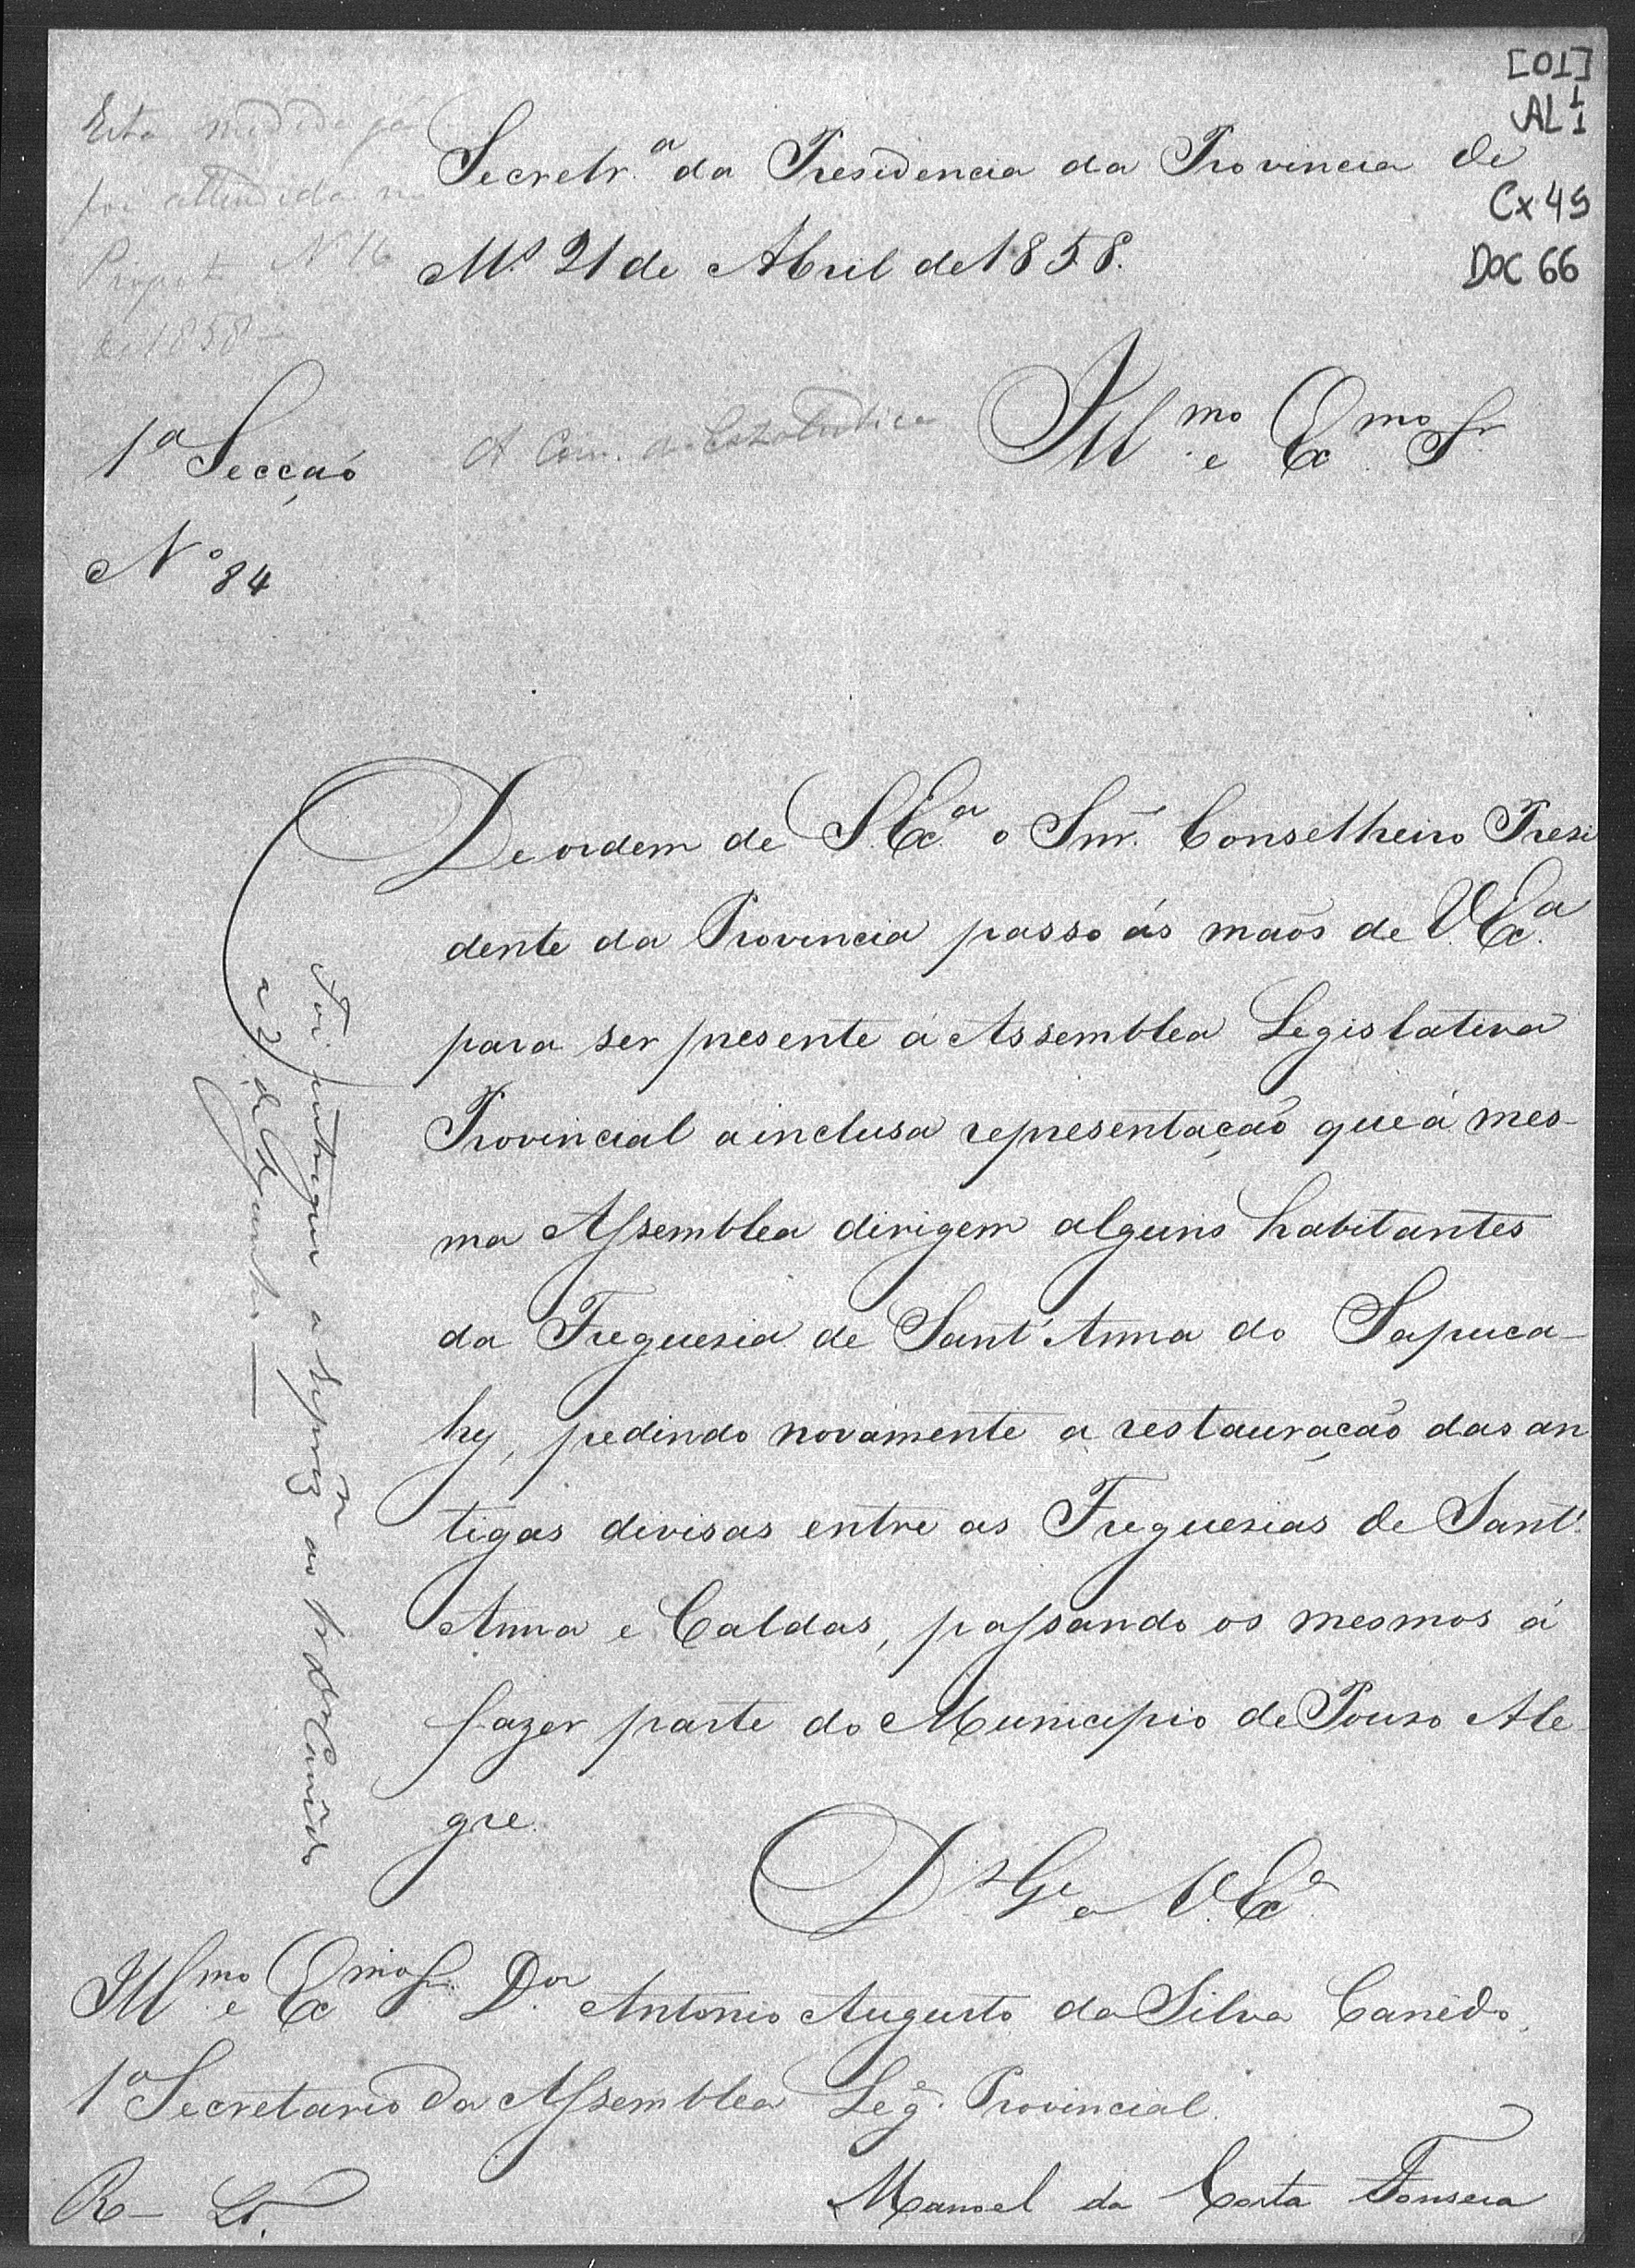 [01]
AL 1/1
Cx 49
DOC 66
Esta medida já
foi attendida n
Propost N 16
de 1858 -
Secretr.ª da Presidencia da Provincia de
M.s 21 de Abril de 1858.
1ª Secção
A Com. de Estatistica
Ill.mo e Ex.mo Sr.
Nº 84
De ordem de S. Ex.ª o Snr. Conselheiro Presi
dente da Provincia passo ás maõs de V. Ex.ª
para ser presente á Assemblea Legislativa
Provincial a inclusa representação que á mes-
ma Assemblea dirigem alguns habitantes
da Freguesia de Sant'Anna do Sapuca-
hy, pedindo novamente a restauração das an
tigas divisas entre as Freguesias de Sant'
Anna e Caldas, passando os mesmos á
fazer parte do Municipio de Pouso Ale
gre.
D.s G.e a V. Ex.ª
Foi entregue a represão ao Sr Dor Canêdo
a 2 de
Ill.mo e Ex.mo Sr. D.or Antonio Augusto da Silva Canêdo,
1º Secretario da Assemblea Leg. Provincial.
Manoel da Costa Fonseca